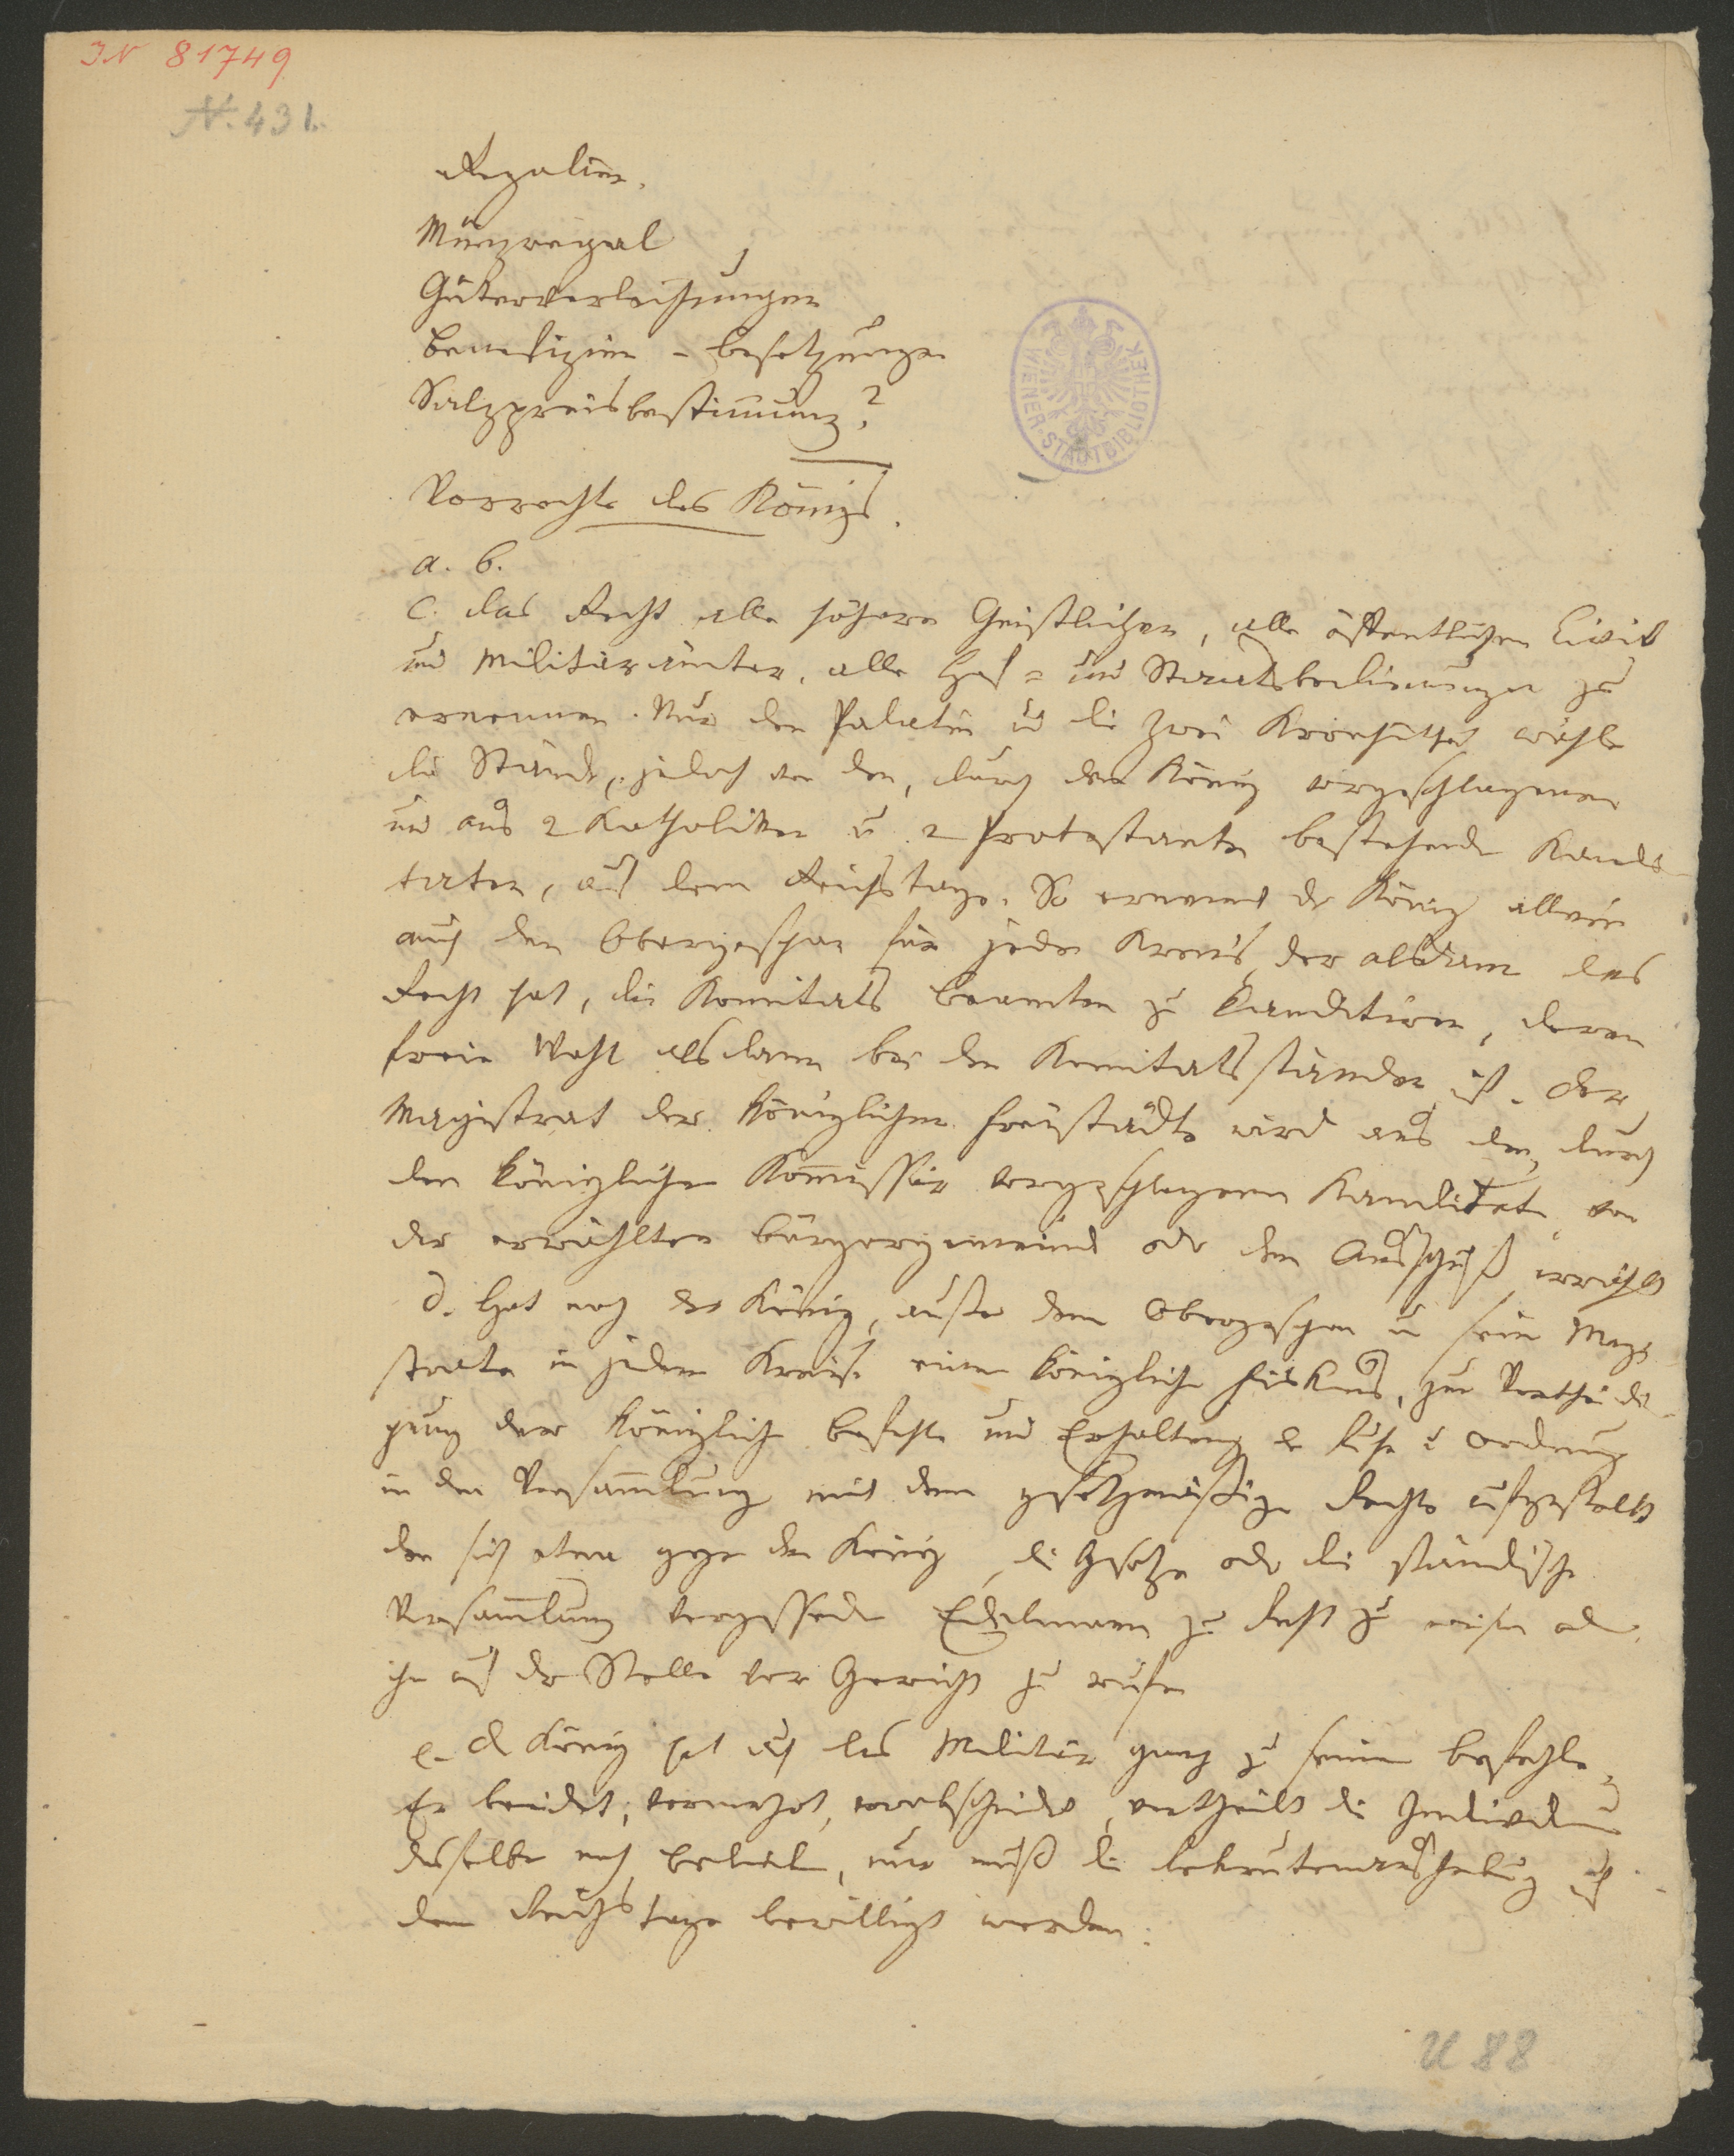 IN 81749
N. 431.
Regalien.
Münzregal
Güterverleihungen
Benefizien-besetzungen
Salzpreisbestimmung?
WIENER STADTBIBLIOTHEK
Vorrechte des Königs.
a. b.
c. das Recht alle höhern Geistlichen, alle öffentlichen Civil
und Militärämter, alle Hof= und Staatsbedienungen zu
ernennen. Nur den Palatin und die zwei Kronhüther wählen
die Stände, jedoch von den, durch den König vorgeschlagenen
und aus 2 Katholiken u 2 Protestanten bestehenden Kandi-
daten, auf dem Reichstage. So ernennt der König allein
auch den Obergespan für jeden Kreis, der alsdann das
Recht hat, die Komitats beamten zu kandidiren, deren
freie Wahl alsdann bei den Komitatsständen ist. Der
Magistrat der königlichen Freistädte wird aus den, durch
den königlichen Kommissär vorgeschlagenen Kandidaten von
der erwählten Bürgergemeinde oder dem Ausschuß erwählt
d. Hat noch der König, außer dem Obergespan u sein Magi
strate in jedem Kreise einen königlichen Fiskus, zur Verthei di-
gung der königlichen Befehle und Erhaltung der Ruhe u Ordnung
in der Versammlung mit dem gesetzmäßigen Rechte aufgestellt
den sich etwa gegen den König, die Gesetze oder die ständische
Versammlung vergessenden Edelmann zu Recht zu weisen oder
ihn auf der Stelle vor Gericht zu rufen
e. Der König hat auch das Militär ganz zu seinem Befehle
Er beeidet, vermehrt, verabschiedet, vertheilt die Individuen
desselben nach Belieben, nur muß die Rekrutenaushebung auf
dem Reichstage bewilligt werden.
U 88